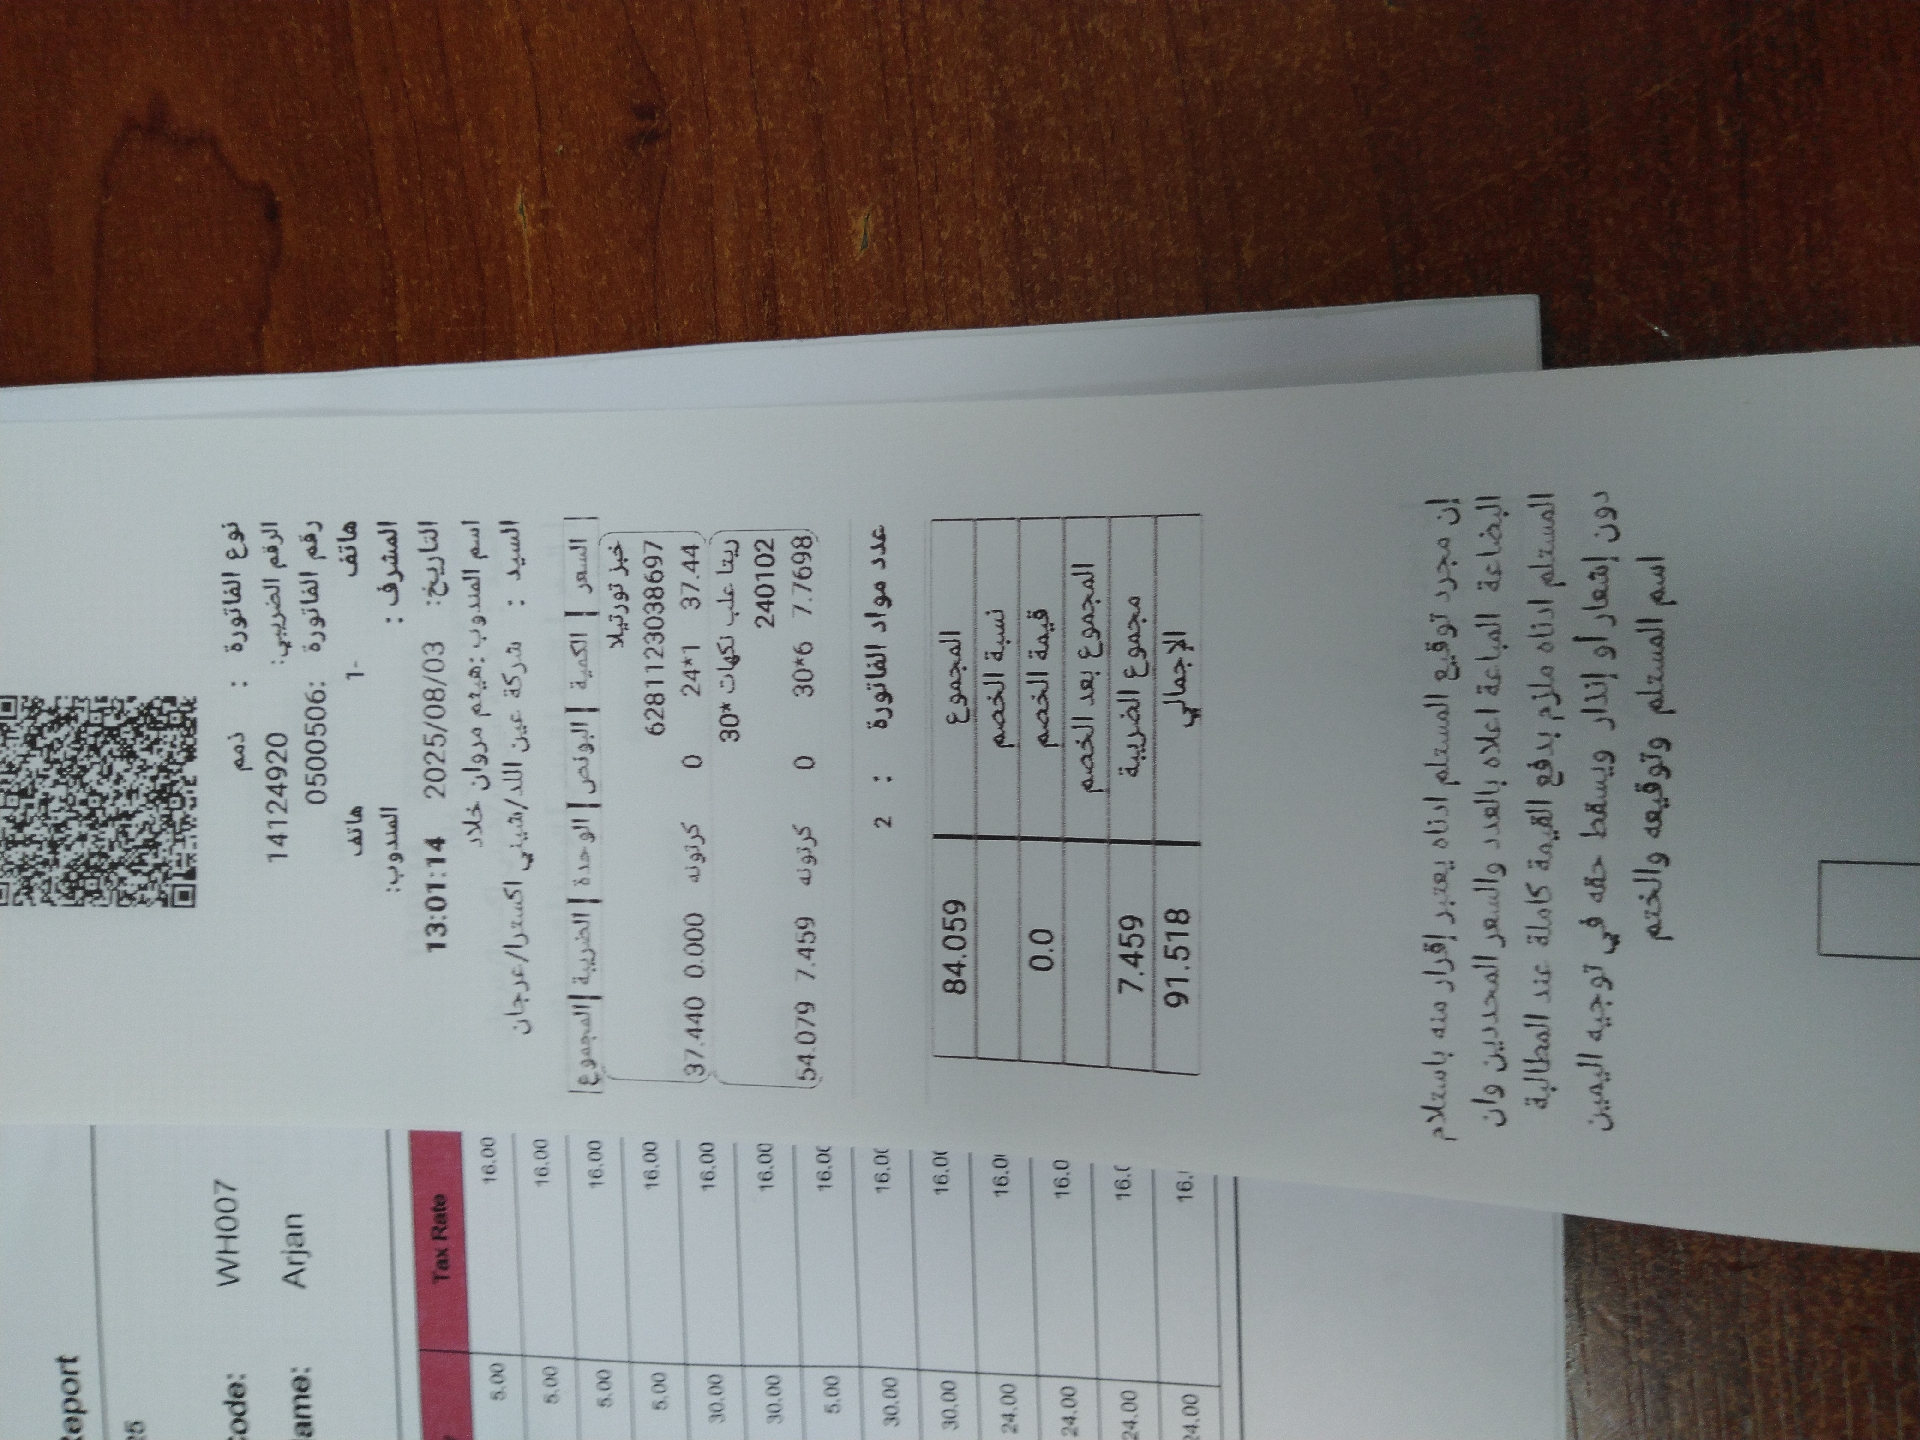 نوع الفاتورة : ذمم
الرقم الضريبي: 14124920
رقم الفاتورة :0500506
هاتف -1 هاتف
المشرف : المندوب:
التاريخ: 2025/08/03 13:01:14
اسم المندوب :هيثم مروان خلاد
السيد : شركة عين اللد/شيني اكسترا/عرجان
السعر | الكمية | البونص | الوحدة | الضريبة | المجموع
خبز تورتيلا
6281123038697
37.44 24*1 0 كرتونه 0.000 37.440
ريتا علب نكهات *30
240102
7.7698 30*6 0 كرتونه 7.459 54.079
عدد مواد الفاتورة : 2
المجموع 84.059
نسبة الخصم
قيمة الخصم 0.0
المجموع بعد الخصم
مجموع الضريبة 7.459
الإجمالي 91.518
إن مجرد توقيع المستلم ادناه يعتبر إقرار منه باستلام
البضاعة المباعة اعلاه بالعدد والسعر المحددين وان
المستلم ادناه ملزم بدفع القيمة كاملة عند المطالبة
دون إشعار أو إنذار ويسقط حقه في توجيه اليمين
اسم المستلم وتوقيعه والختم
Report
25
Code: WH007
ame: Arjan
Tax Rate
5.00 16.00
5.00 16.00
5.00 16.00
5.00 16.00
30.00 16.00
30.00 16.00
5.00 16.00
30.00 16.00
30.00 16.00
24.00 16.0
24.00 16.0
24.00 16.0
24.00 16.